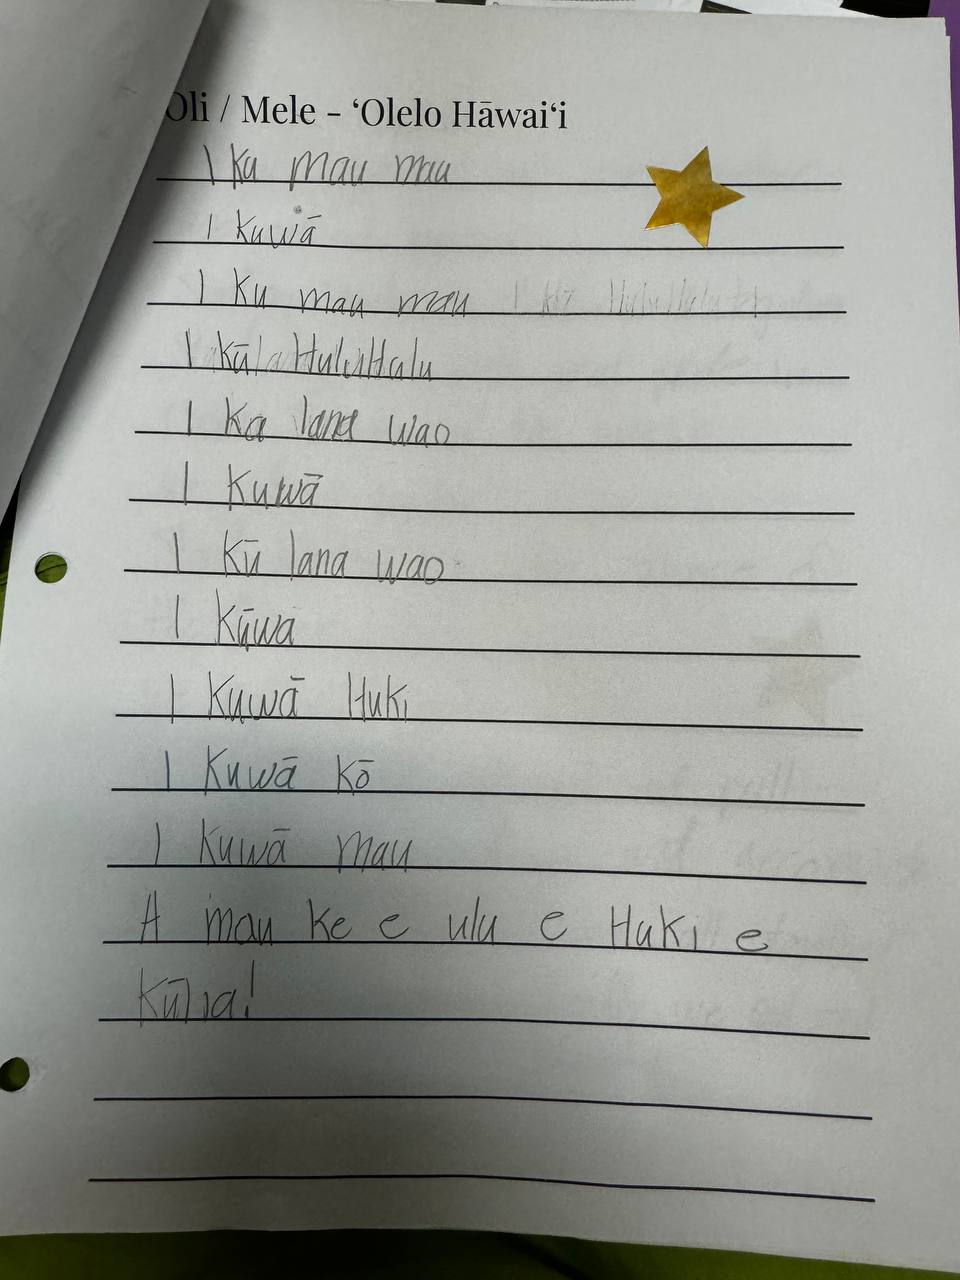 Oli / Mele - ʻOlelo Hāwaiʻi
I Ku mau mau
I kuwā
I Ku mau mau
I kūla HuluHulu
I Ka lana wao
I Kuwā
I Kū lana wao
I Kūwa
I Kuwā Huki
I Kuwā Kō
I Kuwā mau
A mau ke e ulu e Huki e
Kūlia!